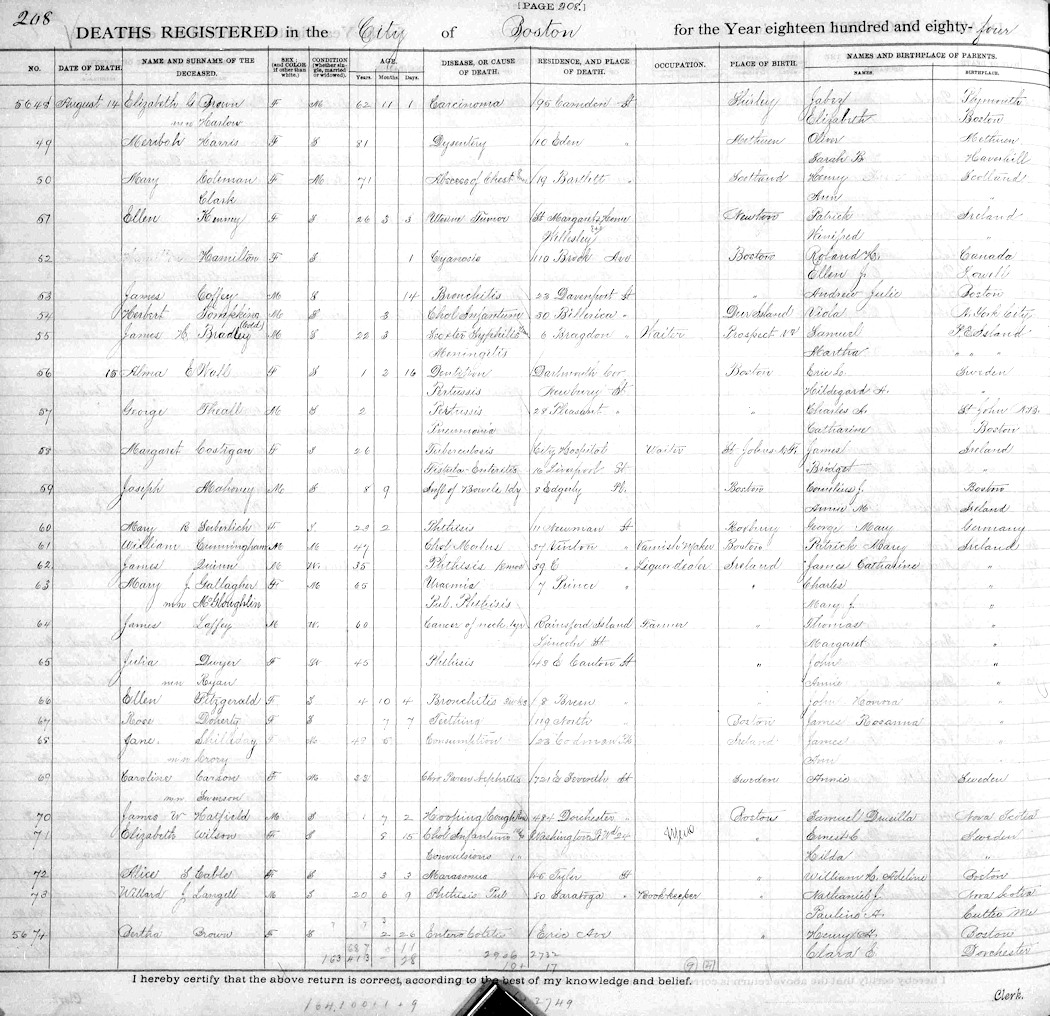 208
[PAGE 208.]
DEATHS REGISTERED in the City of Boston for the Year eighteen hundred and eighty-four
NO. DATE OF DEATH. NAME AND SURNAME OF THE DECEASED. SEX (and COLOR if other than white.) CONDITION (whether single, married or widowed). AGE. Years. Months. Days. DISEASE, OR CAUSE OF DEATH. RESIDENCE, AND PLACE OF DEATH. OCCUPATION. PLACE OF BIRTH. NAMES AND BIRTHPLACE OF PARENTS. NAMES. BIRTHPLACE.
5648 August 14 Elizabeth G Brown F M 62 11 1 Carcinoma 195 Camden St Shirley Jabez Plymouth
mn Harlow Elizabeth Boston
49 Meribah Harris F S 81 Dysentery 110 Eden " Methuen Oliver Methuen
Sarah B Haverhill
50 Mary Coleman F M 71 Abscess of Chest 19 Bartlett " Scotland Henry Scotland
Clark Ann "
51 Ellen Kenney F S 26 3 3 Uterine Tumor St Margarets Home Newton Patrick Ireland
Wellesley Winifred "
52 Hamilton F S 1 Cyanosis 110 Brook Ave Boston Roland H. Canada
Ellen J. Lowell
53 James Coffey M S 14 Bronchitis 23 Davenport St " Andrew Julie Boston
54 Herbert Tompkins M S 3 Chol Infantum 30 Billerica " Deer Island Viola N. York City
55 James H. Bradley M S 22 3 Syphilis 6 Bragdon " Waiter Prospect Samuel P.E. Island
Meningitis Martha " " "
56 15 Alma E Wall F S 1 2 16 Dentition Dartmouth Cor Boston Eric L. Sweden
Pertussis Newbury St Hildegard A. "
57 George Theall M S 2 Pertussis 28 Pleasant " " Charles A. St John N.B.
Pneumonia Catharine Boston
58 Margaret Costigan F S 26 Tuberculosis City Hospital Waiter St Johns N.F. James Ireland
Enteritis 16 Liverpool St Bridget "
59 Joseph Mahoney M S 8 9 Infl of Bowels 1 dy 8 Edgerly Pl. Boston Cornelius J. Boston
Annie M. Ireland
60 Mary B F S 23 2 Phthisis 11 Newman St Roxbury George Mary Germany
61 William Cunningham M M 47 Chol Morbus 37 Vinton " Varnish Maker Boston Patrick Mary Ireland
62 James Quinn M W. 35 Phthisis 39 C " Liquor dealer Ireland James Catharine "
63 Mary J Gallagher F M 65 Uraemia 7 Prince " " Charles "
mn McGloughlin Pul. Phthisis Mary J. "
64 James Laffey M W. 60 Cancer of neck 1 yr Rainsford Island Farmer " Thomas "
Lincoln St Margaret "
65 Julia Dwyer F W 45 Phthisis 143 E Canton St " John "
mn Ryan Annie "
66 Ellen Fitzgerald F S 4 10 4 Bronchitis 8 Green " " John Honora "
67 Rose Doherty F S 7 7 Teething 119 North " Boston James Rosanna "
68 Jane M 43 5 Consumption 123 Codman Pk Ireland James "
mn Ann "
69 Caroline Carson F M 33 Nephritis 721 E Seventh St Sweden Annie Sweden
mn Swanson
70 James W Hatfield M S 1 7 2 Hooping Cough 484 Dorchester " Boston Samuel Drusilla Nova Scotia
71 Elizabeth Wilson F S 8 15 Chol Infantum Washington St Wd 24 " Ernest C. Sweden
Convulsions Hilda "
72 Alice S Cable F S 3 3 Marasmus 65 Tyler St " William H. Adeline Boston
73 Willard J Langell M S 20 6 9 Phthisis Pul 50 Saratoga " Bookkeeper " Nathaniel J. Nova Scotia
Pauline A. Cutler Me
5674 Bertha Brown F S 2 26 Entero Colitis Erie Ave " Henry A. Boston
Clara E Dorchester
687 0 11
163 413 - 28 2906 2732
17
I hereby certify that the above return is correct, according to the best of my knowledge and belief.
2749
Clerk.